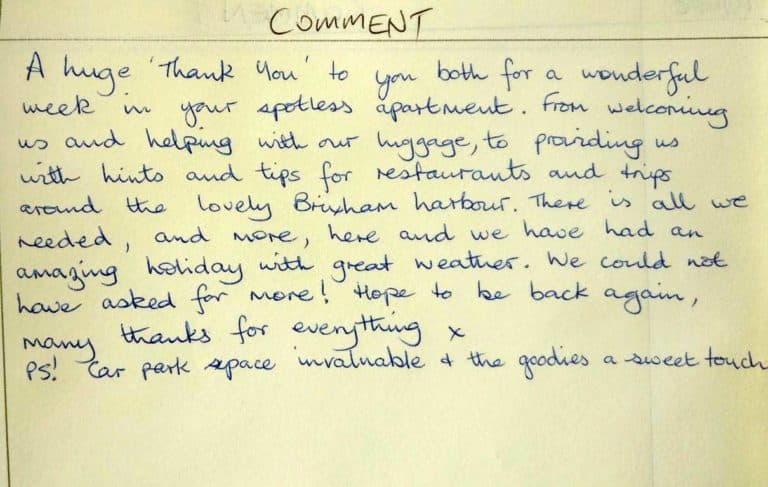 COMMENT
A huge 'Thank You' to you both for a wonderful
week in your spotless apartment. From welcoming
us and helping with our luggage, to providing us
with hints and tips for restaurants and trips
around the lovely Brixham harbour. There is all we
needed, and more, here and we have had an
amazing holiday with great weather. We could not
have asked for more! Hope to be back again,
many thanks for everything x
PS! Car park space invaluable & the goodies a sweet touch